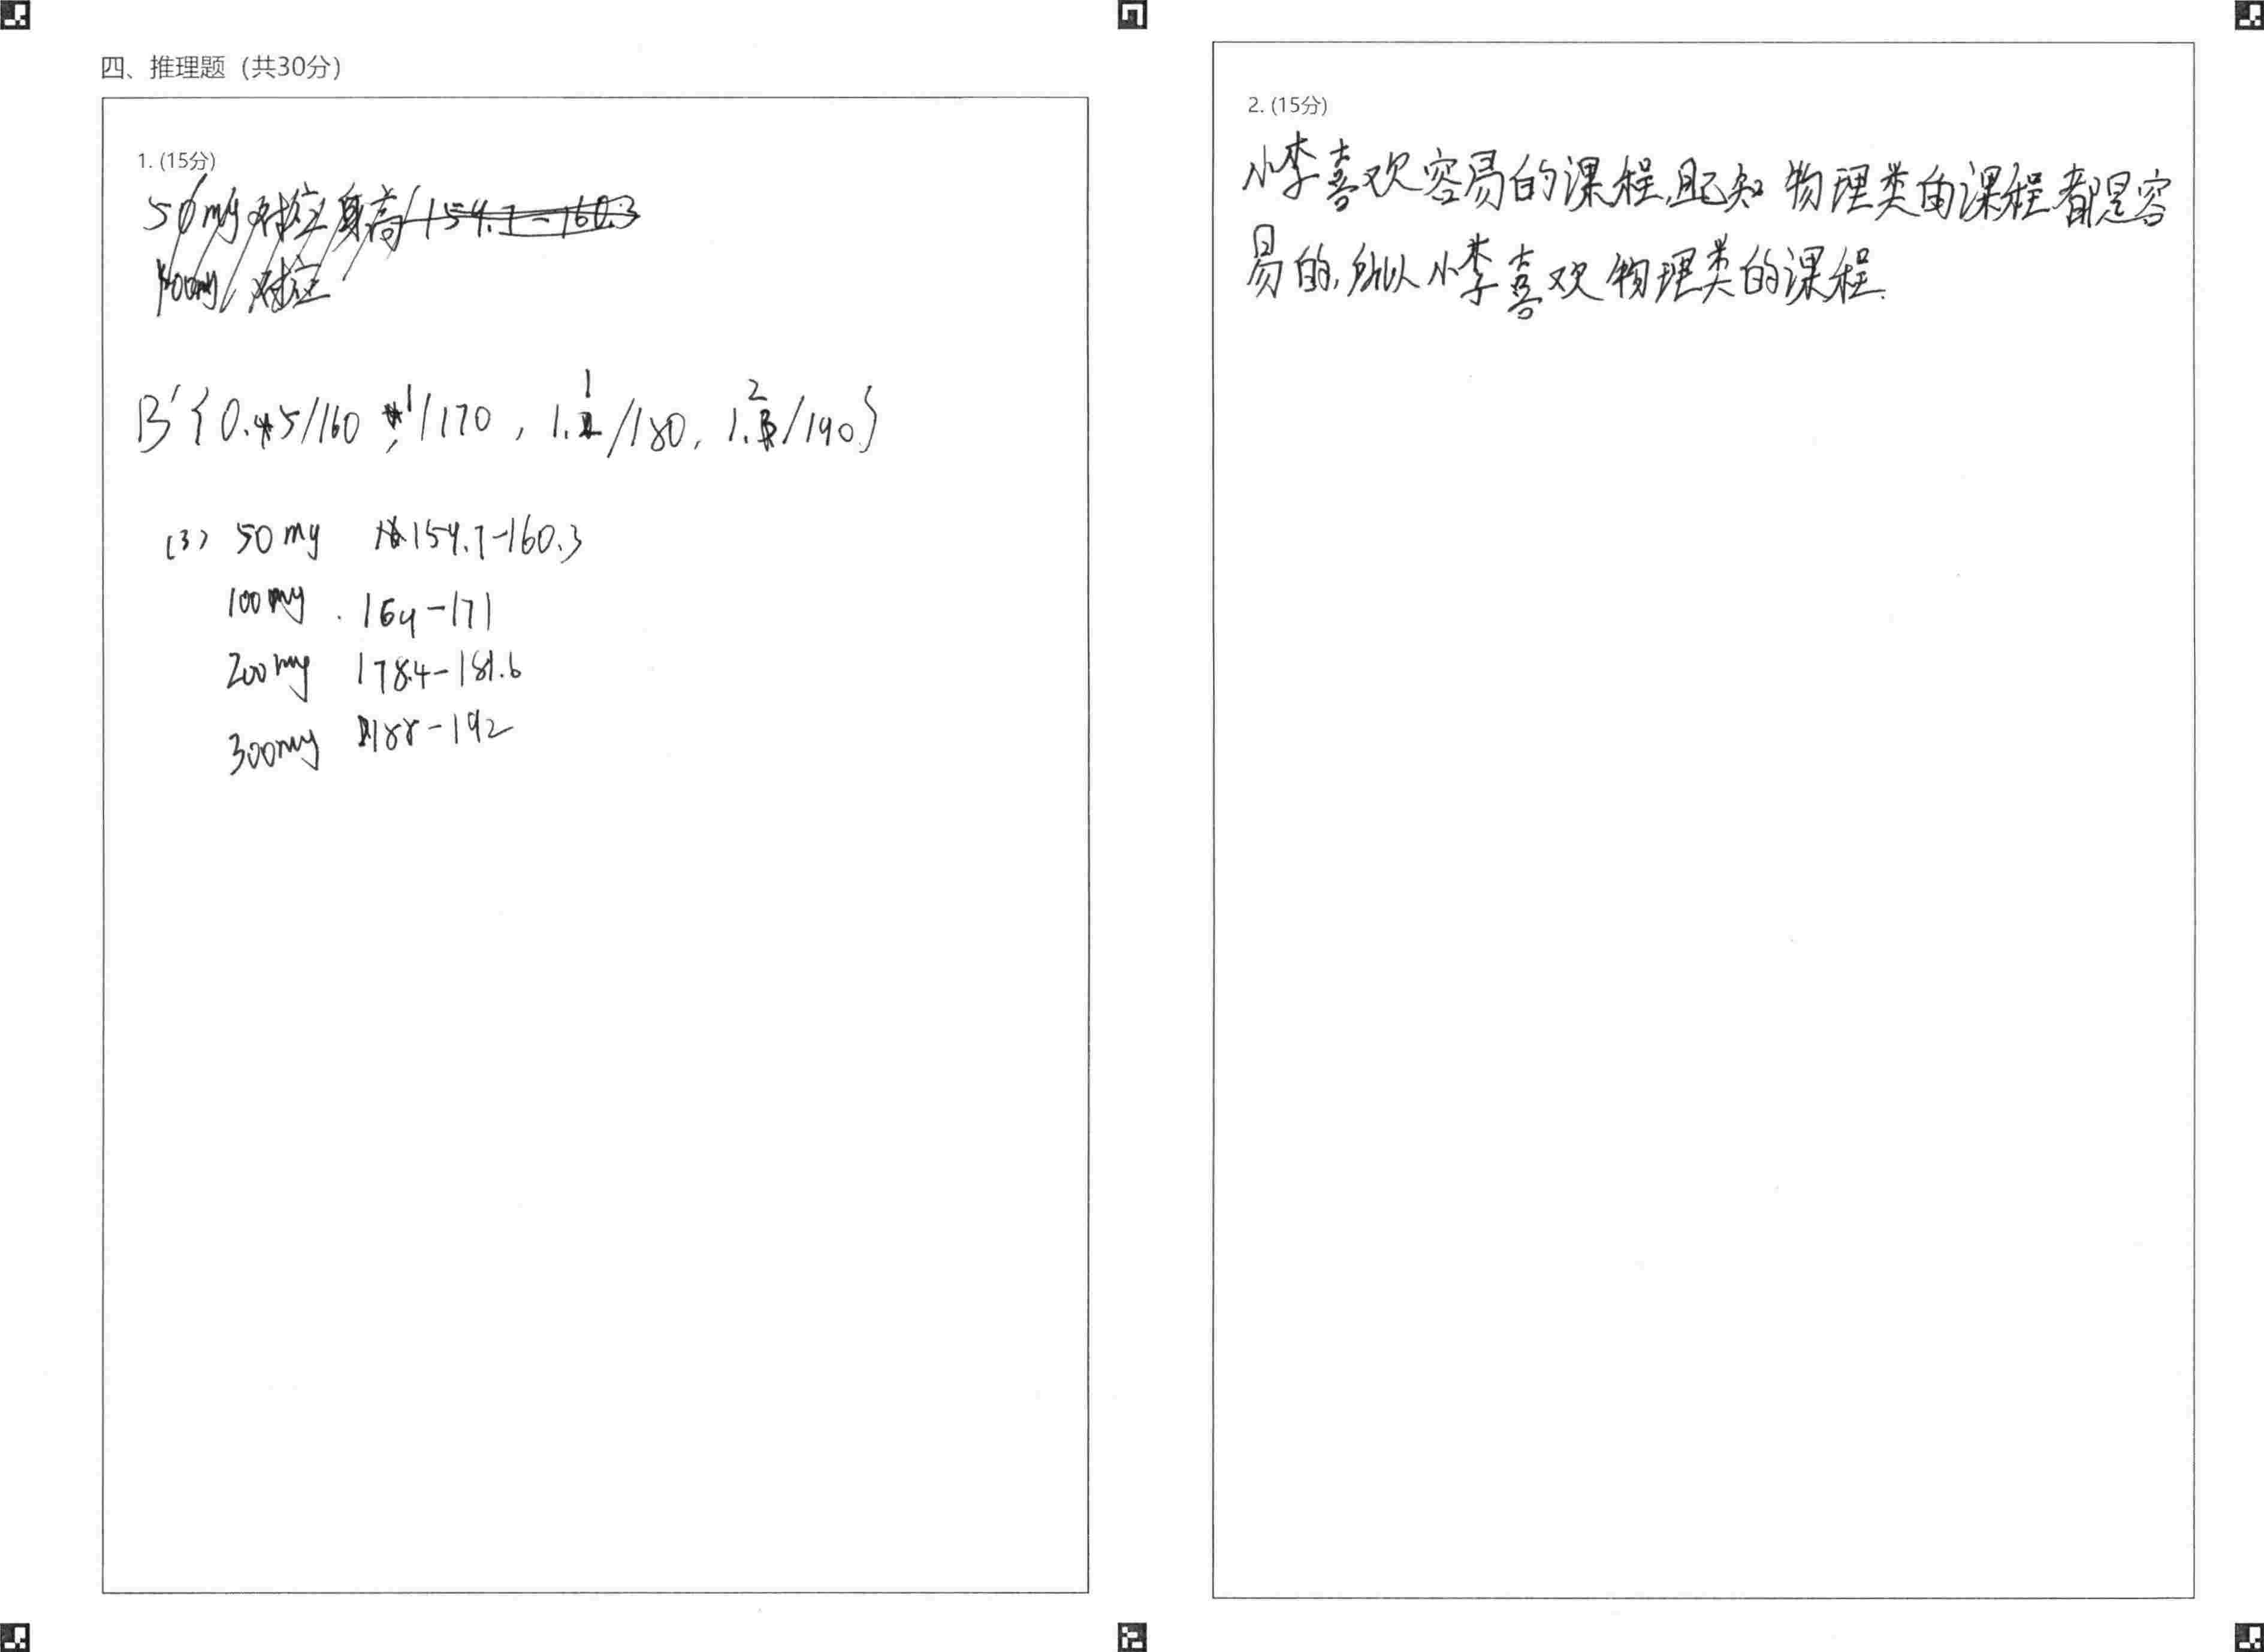 四、推理题（共30分）
1. (15分)
50mg 对应身高 154.7-160.3
100mg 对应
B'{0.5/160, 1/170, 1.1/180, 1.2/190}
(3) 50mg 154.7-160.3
100mg. 164-171
200mg 178.4-181.6
300mg 188-192
2. (15分)
小李喜欢容易的课程,且已知物理类的课程都是容
易的,所以小李喜欢物理类的课程.